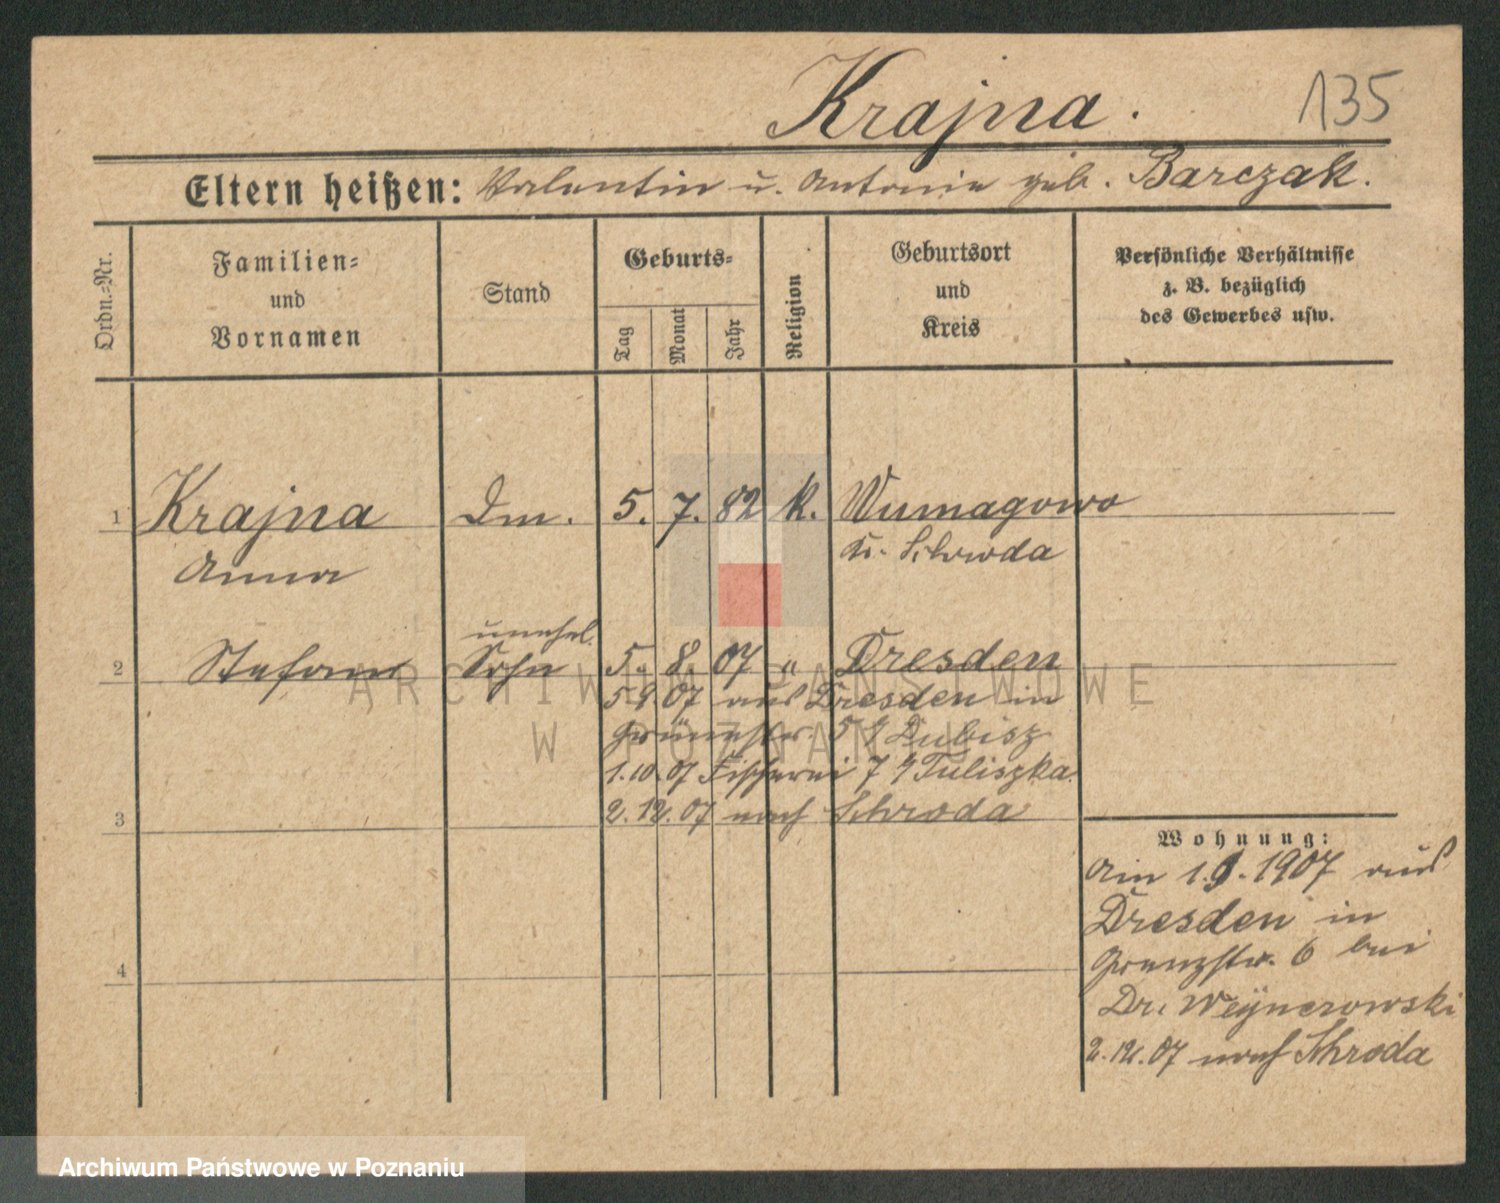 Krajna. 135
Eltern heißen: Valentin u. Antonie geb. Barczak.
Ordn.-Nr.
Familien- und Vornamen
Stand
Geburts-
Tag
Monat
Jahr
Religion
Geburtsort und Kreis
Persönliche Verhältnisse
z. B. bezüglich
des Gewerbes usw.
1 Krajna Dm. 5. 7. 82 k. Wumagowo
Anna Kr. Schroda
unehel.
2 Stefan Sohn 5. 8. 07 " Dresden
5 9 07 aus Dresden in
5 Dubisz
1.10.07 Fischerei 7 Tuliszka
2.12.07 nach Schroda
3
4
Wohnung:
Am 1.9.1907 aus
Dresden in
Grenzstr. 6 bei
Dr. Weynerowski
2.12.07 nach Schroda
ARCHIWUM PAŃSTWOWE
W POZNANIU
Archiwum Państwowe w Poznaniu